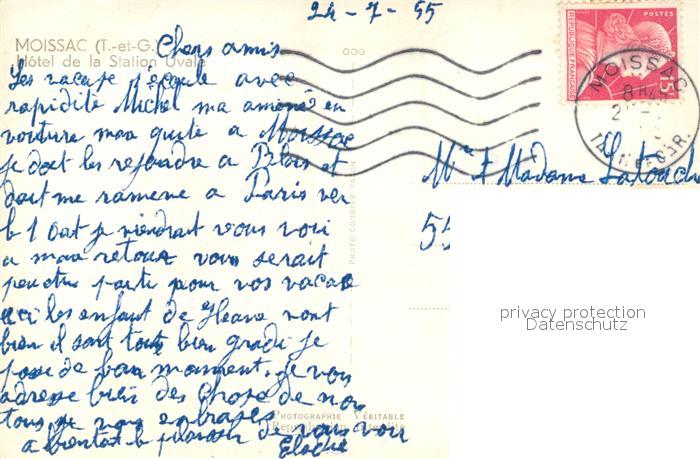 24-7-55
MOISSAC (T.-et-G.)
Hôtel de la Station Uvale
Chers amis
Les vacase s'écoule avec
rapidité Michel ma amené en
voiture maa quité a Moissac
je doit les rejoindre a Blois et
doit me ramene a Paris ver
le 1 Oat je viendrait vous voir
a mon retour vous serait
peutetre parti pour vos vacase
ici les enfant de vont
bien il sont tout bien grandi je
passe de bon moment. je vous
adresse bien des chose de nous
tous je vous embrasse
a bientot le plaisir de vous voir
Elodie
PHOTO COMBIER MACON
000
POSTES
RÉPUBLIQUE FRANÇAISE
15F
MOISSAC
8H
2
TARN
Mr et Madame Latouche
55
PHOTOGRAPHIE VÉRITABLE
Reproduction interdite
privacy protection
Datenschutz